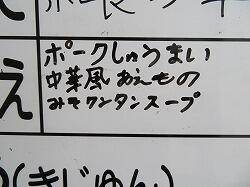 え
ポークしゅうまい
中華風あえもの
みそワンタンスープ
(きじゅん)